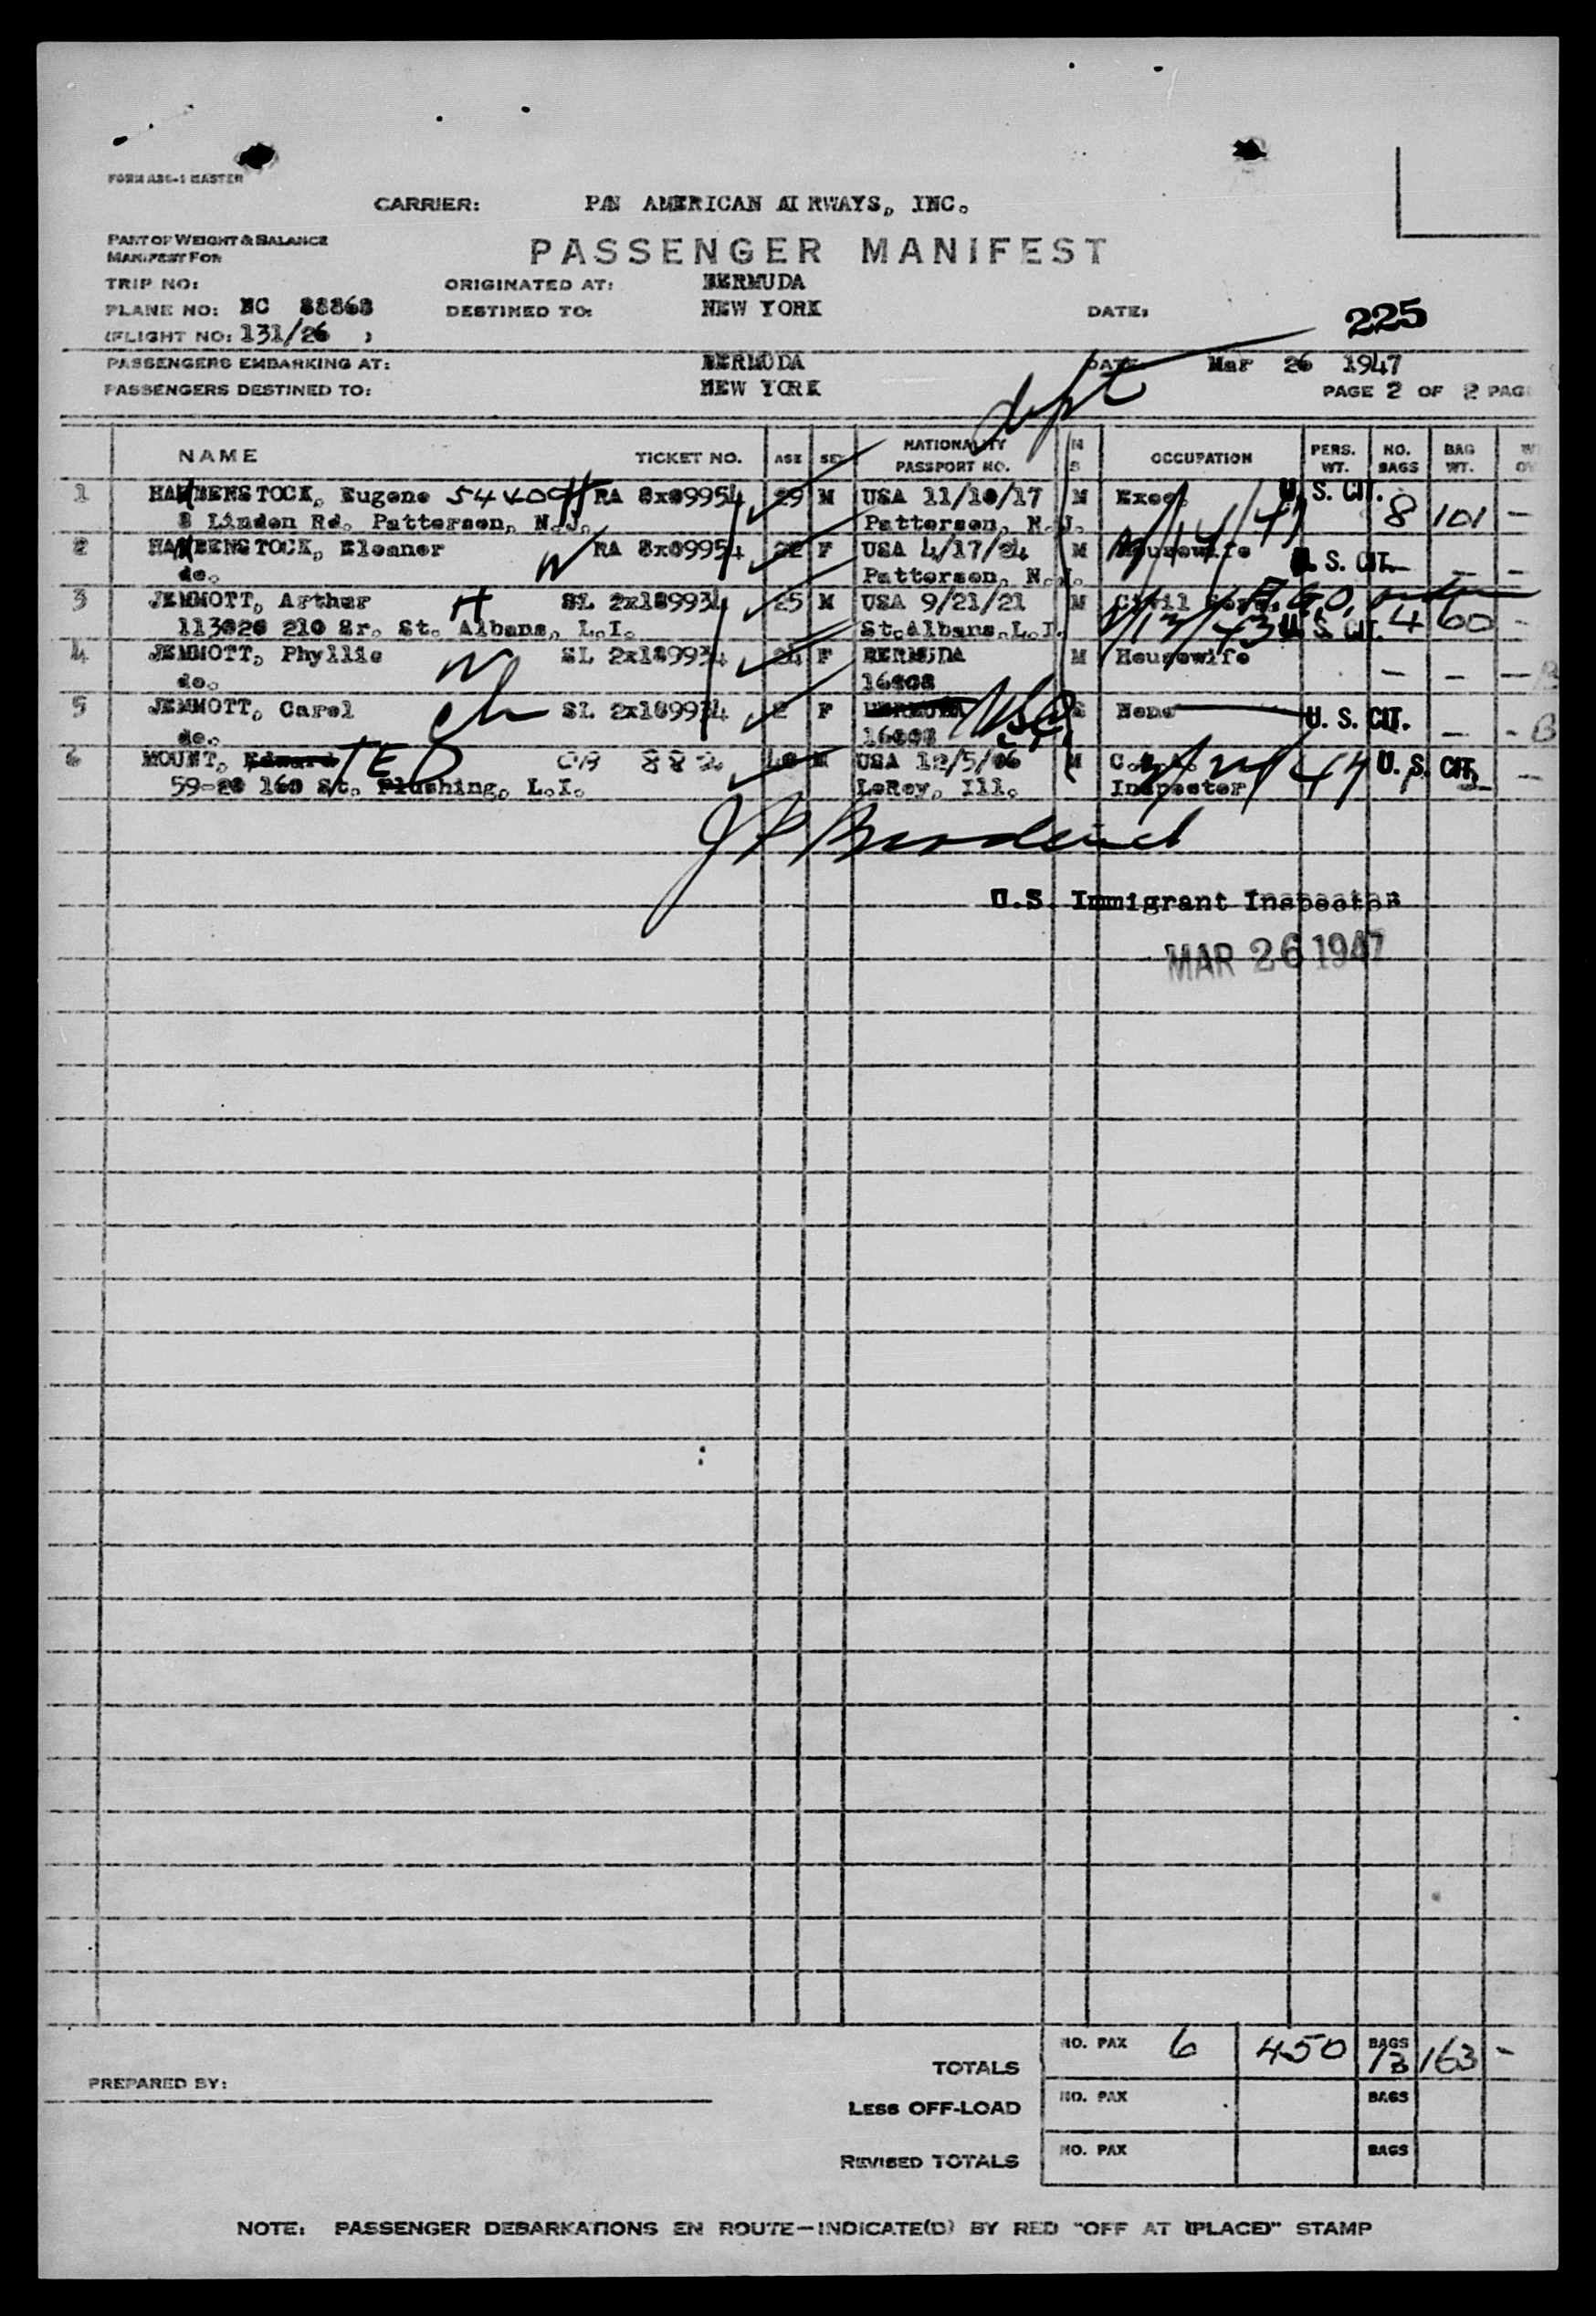 FORM ABC-1 MASTER
CARRIER: PAN AMERICAN AIRWAYS, INC.
PART OF WEIGHT & BALANCE
MANIFEST FOR
PASSENGER MANIFEST
TRIP NO: ORIGINATED AT: BERMUDA
PLANE NO: NC 88868 DESTINED TO: NEW YORK DATE: 225
(FLIGHT NO: 131/26 )
PASSENGERS EMBARKING AT: BERMUDA DATE: Mar 26 1947
PASSENGERS DESTINED TO: NEW YORK PAGE 2 OF 2 PAG
dept
NAME TICKET NO. AGE SEX NATIONALITY PASSPORT NO. M S OCCUPATION PERS. WT. NO. BAGS BAG WT.
1 Eugene H RA 8x09954 29 M USA 11/10/17 M Exec. U. S. CIT. 8 101 -
8 Linden Rd. Patterson, N.J. Patterson, N.J.
2 Eleanor W RA 8x09954 22 F USA 4/17/24 M Housewife U. S. CIT. - - -
do. Patterson, N.J.
3 JEMMOTT, Arthur H SL 2x189934 25 M USA 9/21/21 M Civil U. S. CIT. 4 60 -
113020 210 Sr. St. Albans, L.I. St. Albans, L.I.
4 JEMMOTT, Phyllis W SL 2x189934 24 F BERMUDA M Housewife - - -
do.
5 JEMMOTT, Carol ch SL 2x189934 2 F BERMUDA USA S None U. S. CIT. - - B
do.
6 MOUNT, Edward TED 882 40 M USA 12/5/06 M U. S. CIT. -
59-20 160 St. Flushing, L.I. LeRoy, Ill. Inspector
U.S. Immigrant Inspector
MAR 26 1947
TOTALS NO. PAX 6 450 BAGS 13 163 -
PREPARED BY:
LESS OFF-LOAD NO. PAX BAGS
REVISED TOTALS NO. PAX BAGS
NOTE: PASSENGER DEBARKATIONS EN ROUTE—INDICATE(D) BY RED "OFF AT (PLACE)" STAMP